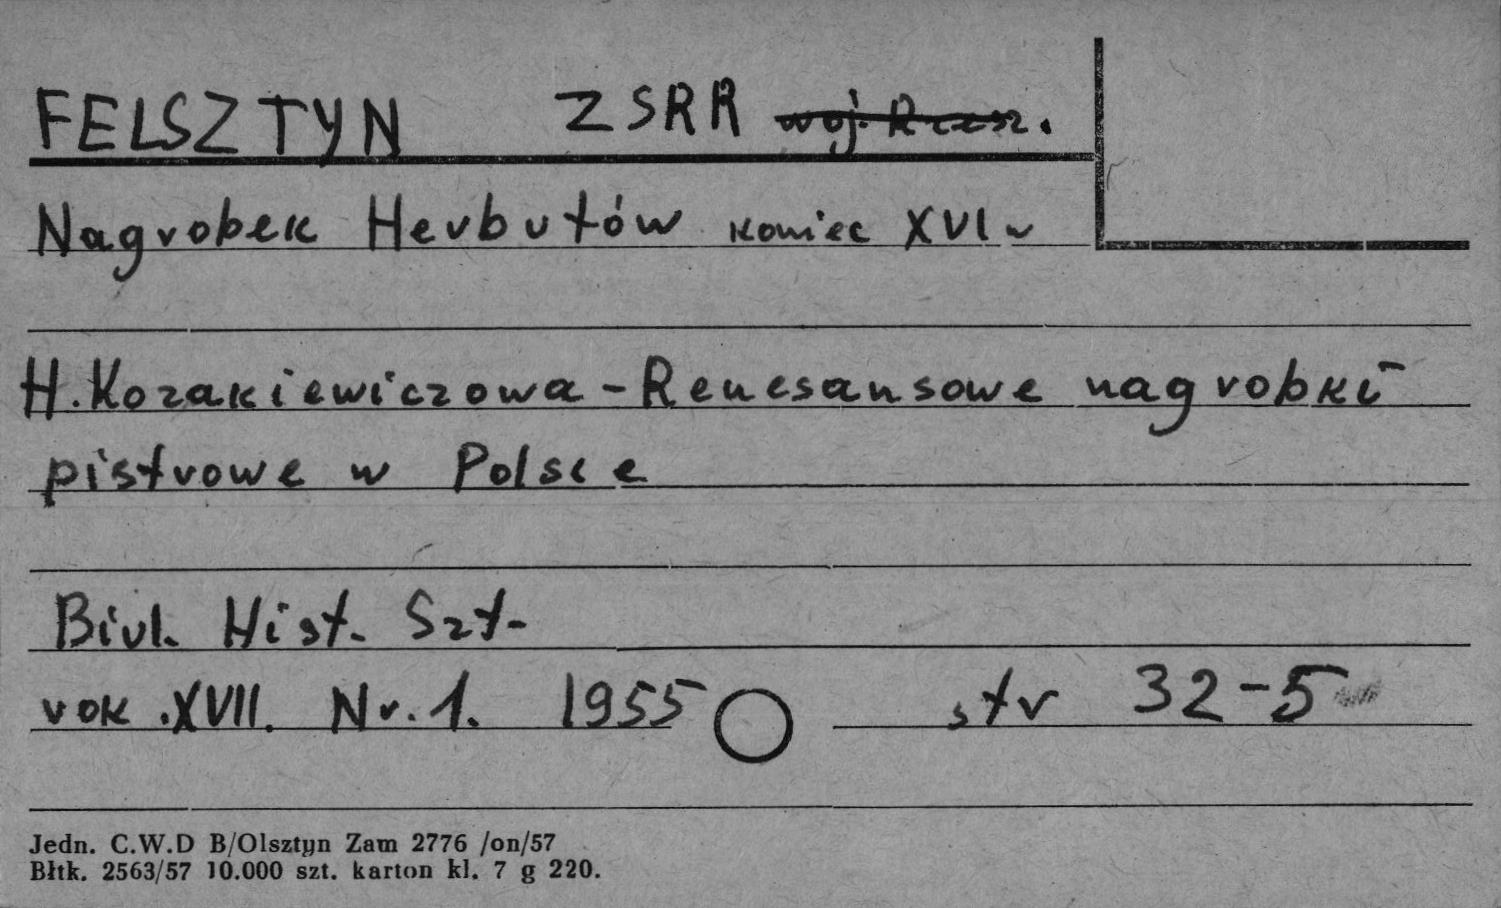 FELSZTYN ZSRR woj. Rzesz.
Nagrobek Herbutów koniec XVI w
H. Kozakiewiczowa - Renesansowe nagrobki
piętrowe w Polsce
Biul. Hist. Szt.
rok .XVII. Nr. 1. 1955 str 32-5
Jedn. C.W.D B/Olsztyn Zam 2776 /on/57
Błtk. 2563/57 10.000 szt. karton kl. 7 g 220.